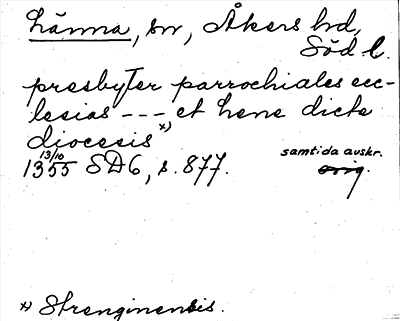 Länna, sn, Åkers hd,
Söd. l.
presbyter parrochiales ecc-
lesias --- et hene dicte
diocesis x)
13/10
1355 SD6, s. 877.
samtida avskr.
orig.
x) Strenginensis.